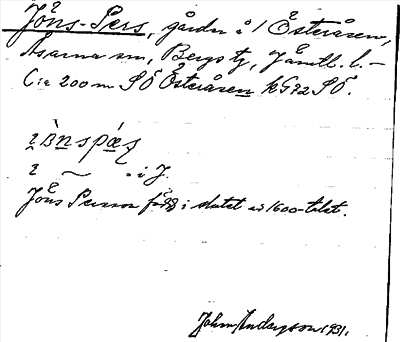 Jöns-Pers, gården å / Österåsen,
Åsarna sn, Bergs tg, Jämtl. l. –
C:a 200 m SÖ Österåsen kG 32 SÖ.
Jöns Persson född i slutet av 1600-talet.
John Andersson 1931.